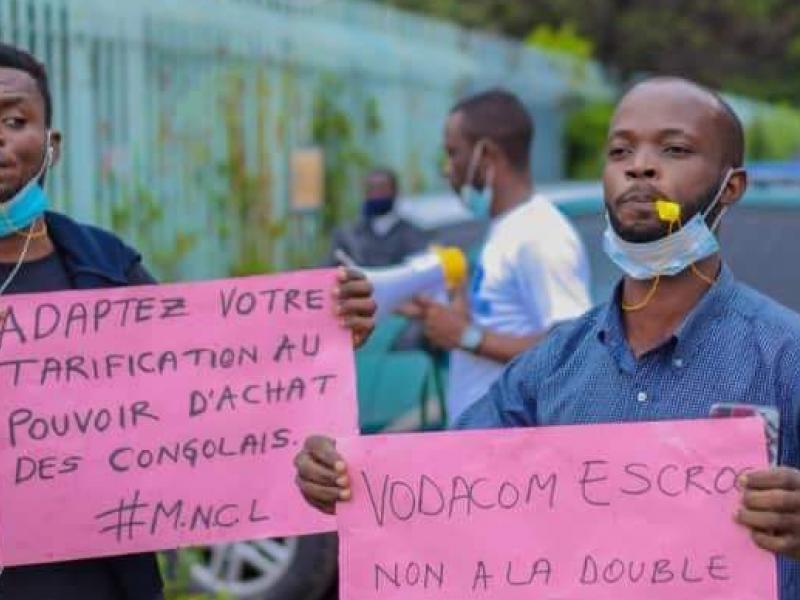 ADAPTEZ VOTRE
TARIFICATION AU
POUVOIR D'ACHAT
DES CONGOLAIS.
#M.N.C.L
VODACOM ESCROC
NON A LA DOUBLE